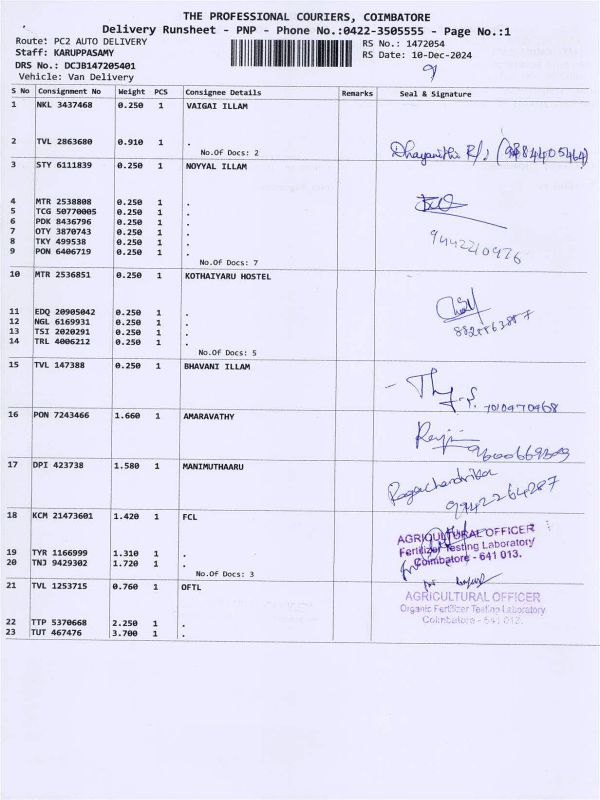 THE PROFESSIONAL COURIERS, COIMBATORE
Delivery Runsheet - PNP - Phone No.:0422-3505555 - Page No.:1
Route: PC2 AUTO DELIVERY
RS No.: 1472054
Staff: KARUPPASAMY
RS Date: 10-Dec-2024
DRS No.: DCJB147205401
Vehicle: Van Delivery
S No Consignment No Weight PCS Consignee Details Remarks Seal & Signature
1 NKL 3437468 0.250 1 VAIGAI ILLAM
2 TVL 2863680 0.910 1 .
No.Of Docs: 2
3 STY 6111839 0.250 1 NOYYAL ILLAM
4 MTR 2538808 0.250 1 .
5 TCG 50770005 0.250 1 .
6 PDK 8436796 0.250 1 .
7 OTY 3870743 0.250 1 .
8 TKY 499538 0.250 1 .
9 PON 6406719 0.250 1 .
9442210976
No.Of Docs: 7
10 MTR 2536851 0.250 1 KOTHAIYARU HOSTEL
11 EDQ 20905042 0.250 1 .
12 NGL 6169931 0.250 1 .
13 TSI 2020291 0.250 1 .
14 TRL 4006212 0.250 1 .
No.Of Docs: 5
15 TVL 147388 0.250 1 BHAVANI ILLAM
7010970968
16 PON 7243466 1.660 1 AMARAVATHY
17 DPI 423738 1.580 1 MANIMUTHAARU
Ragachandrika
9942264287
18 KCM 21473601 1.420 1 FCL
AGRICULTURAL OFFICER
Fertilizer Testing Laboratory
Coimbatore - 641 013.
19 TYR 1166999 1.310 1 .
20 TNJ 9429302 1.720 1 .
No.Of Docs: 3
21 TVL 1253715 0.760 1 OFTL
AGRICULTURAL OFFICER
Organic Fertilizer Testing Laboratory
Coimbatore - 641 013.
22 TTP 5370668 2.250 1 .
23 TUT 467476 3.700 1 .